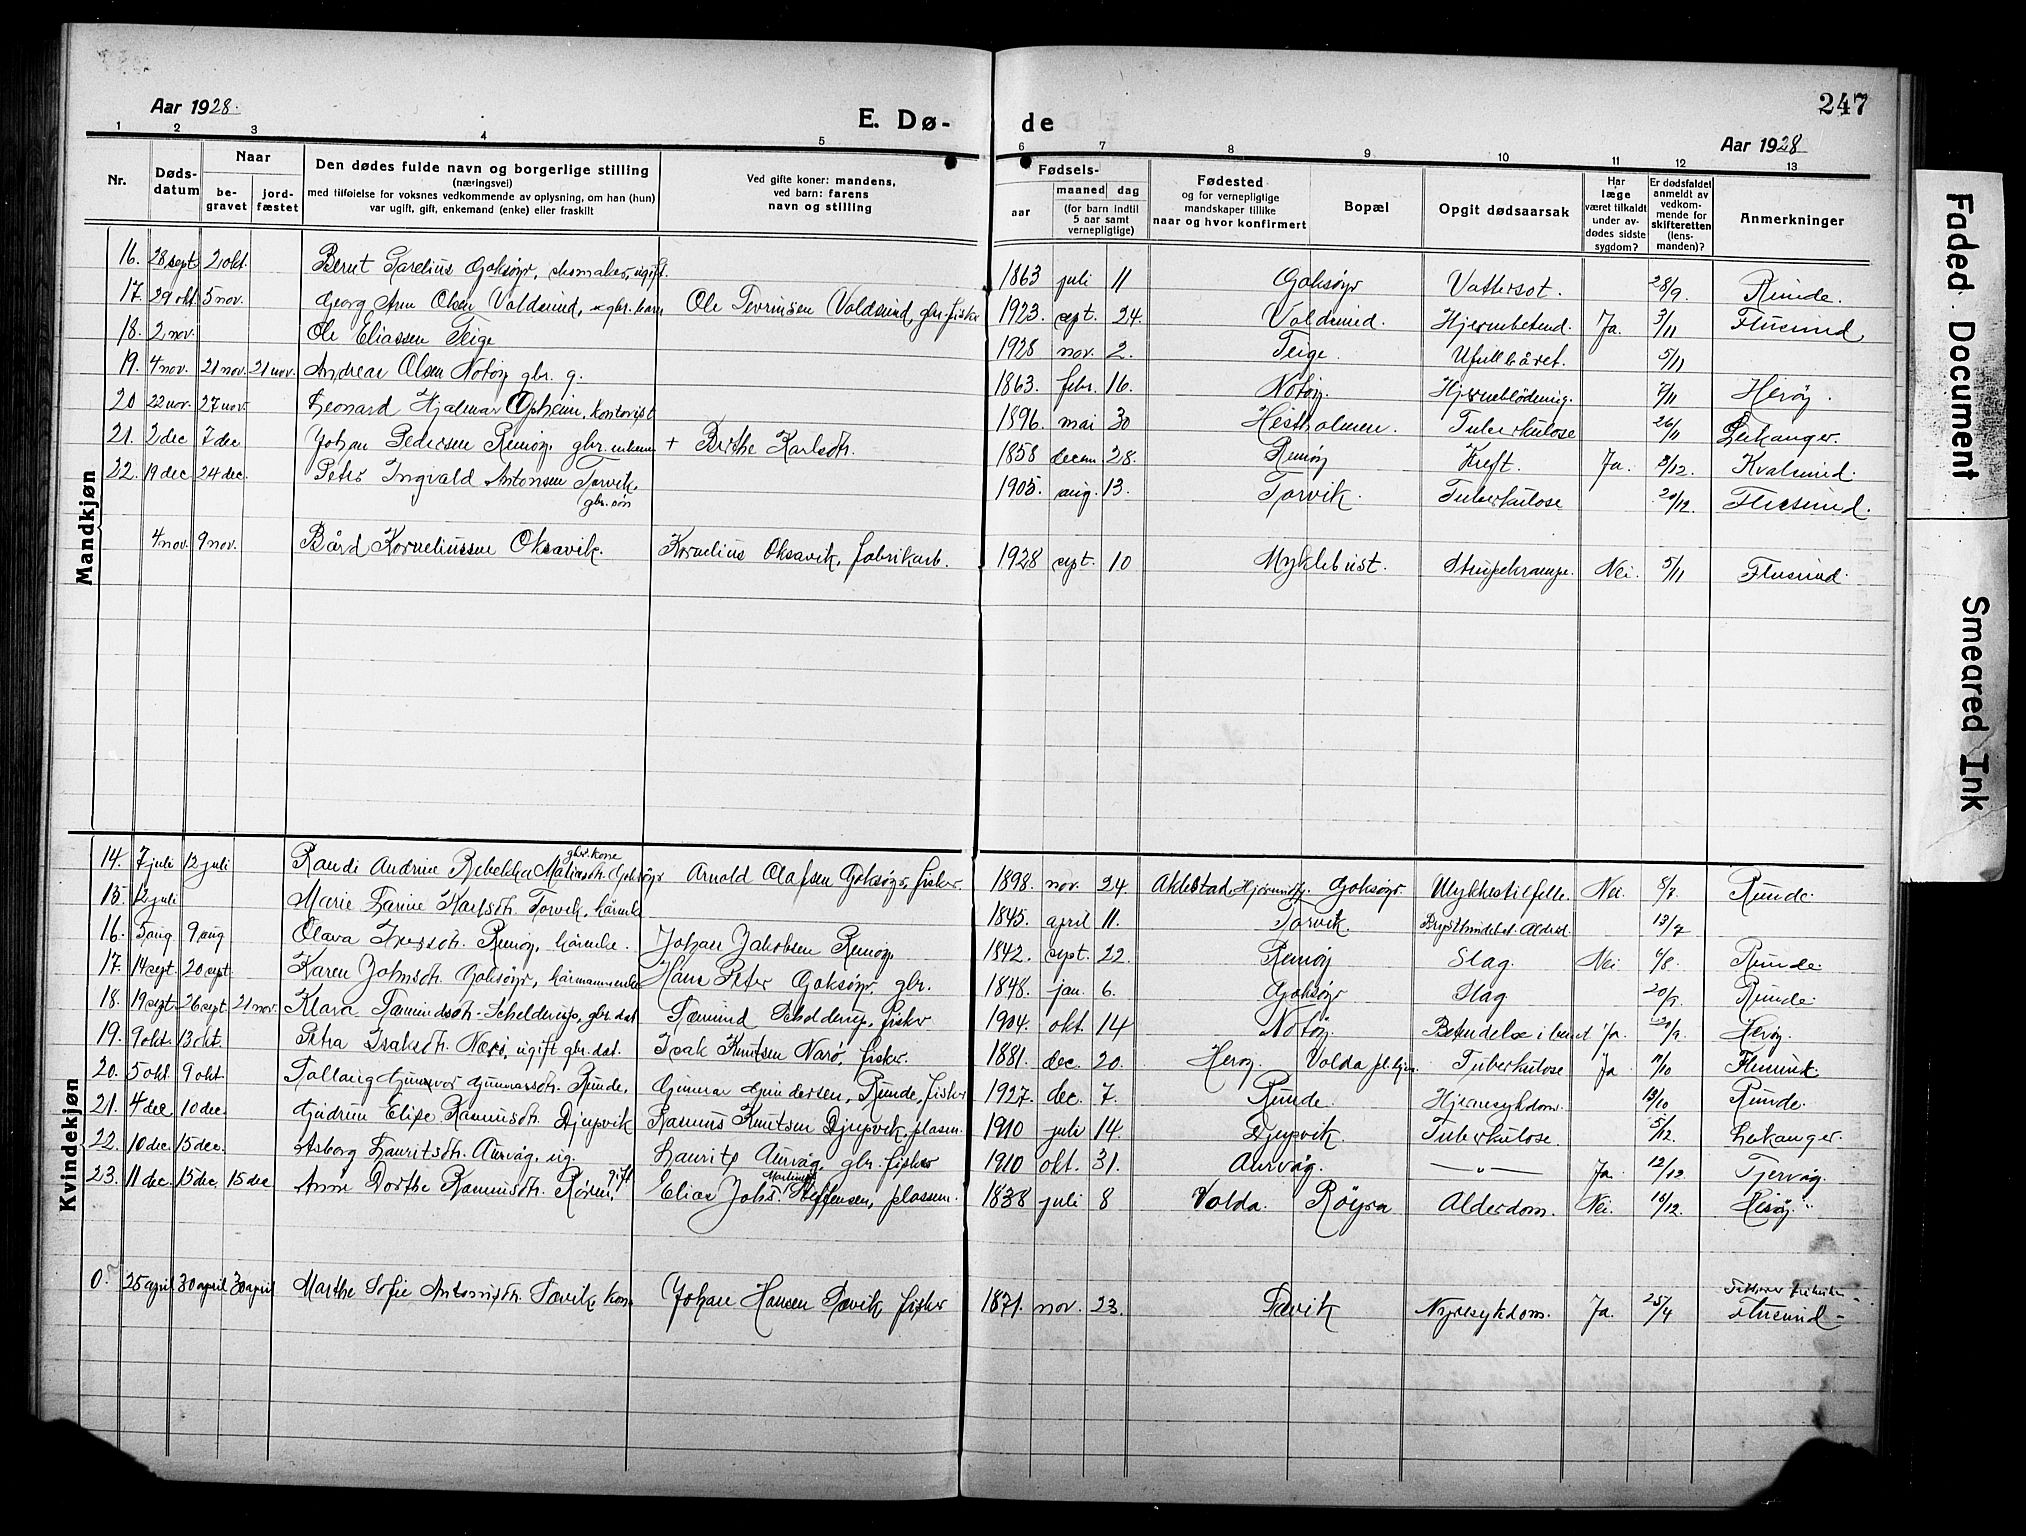 Aar 1928.
E. Dø-
de
247
Aar 1928
1 2 3 4 5 6 7 8 9 10 11 12 13
Nr.
Dødsdatum
Naar
begravet
jordfæstet
Den dødes fulde navn og borgerlige stilling
(næringsvei)
med tilføielse for voksnes vedkommende av oplysning, om han (hun)
var ugift, gift, enkemand (enke) eller fraskilt
Ved gifte koner: mandens,
ved barn: farens
navn og stilling
Fødsels-
aar
maaned
dag
(for barn indtil
5 aar samt
vernepligtige)
Fødested
og for vernepligtige
mandskaper tillike
naar og hvor konfirmert
Bopæl
Opgit dødsaarsak
Har
læge
været tilkaldt
under av-
dødes sidste
sygdom?
Er dødsfaldet
anmeldt av
vedkom-
mende for
skifteretten
(lens-
manden)?
Anmerkninger
Mandkjøn
16. 28 sept 2 okt. Bernt Karelius Goksöyr, skomaker, ugift. 1863 juli 11 Goksöyr Vattersot. 28/9. Runde.
17. 29 okt. 5 nov. Georg Olsen Voldsund, gbr. barn Ole Voldsund, gbr. fisker 1923. sept. 24. Voldsund. Hjernebetend. Ja. 3/11 Flusund
18. 2 nov. Ole Eliassen Teige 1928 nov. 2. Teige. Ufullbåret. 5/11
19. 4 nov. 21 nov. 21 nov. Andreas Olsen Notöy gbr. g. 1863. febr. 16. Notöy. Hjerneblödning. 6/11 Heröy.
20 22 nov. 27 nov. Leonard Hjalmar Opheim, kontorist 1896. mai 30 Hestholmen. Tuberkulose 26/11 Leikanger.
21. 2 dec 7 dec Johan Pedersen Remöy gbr. enkem + Berthe Karlsdt. 1858 decem. 28. Remöy Kreft. Ja. 3/12. Kvalsund.
22. 19 dec 24 dec. Peter Ingvald Antonsen Torvik, gbr. sön 1905. aug. 13. Torvik. Tuberkulose 20/12. Flusund.
4 nov. 9 nov. Bård Korneliussen Oksavik. Kornelius Oksavik, fabrikarb. 1928 sept. 10 Myklebust. Strupekrampe. Nei. 5/11 Flusund.
Kvindekjøn
14. 7 juli 12 juli Randi Andrine Rebekka Matiasdt. Goksöyr gbr. kone Arnold Olafsen Goksöyr, fisker 1898. nov. 24. Aklestad, Hjörundfj. Goksöyr. Ulykkestilfelle. Nei. 8/7. Runde.
15. 12 juli Marie Karlsdt. Torvik, kårenke 1845. april 11. Torvik. 13/7
16. 5 aug 9 aug Olava Iversdt. Remöy, kårenke. Johan Jakobsen Remöy. 1842. sept. 22. Remöy Slag. Nei 6/8. Runde.
17. 14 sept. 20 sept. Karen Johnsdt. Goksöyr, kårmannsenke Hans Peter Goksöyr, gbr. 1848. jan. 6. Goksöyr Slag. 20/9. Runde.
18. 19 sept. 26 sept 21 nov. Klara Rasmundsdt. Schelderup, gbr. dat Rasmund Schelderup, fisker 1904. okt. 14 Notöy. Betendelse i benet Ja. 20/9. Heröy.
19. 9 okt. 13 okt. Petra Isaksdt. Nærö, ugift gbr. dat. Isak Knutsen Nærö, fisker. 1881. dec. 20. Heröy Volda pl. hjem Tuberkulose Ja 11/10 Flusund
20. 5 okt. 9 okt. Gunvor Gunnarsdt. Runde. Gunnar Gundersen, Runde, fisker 1927. dec. 7. Runde. Hjernesykdom. 13/10 Runde.
21. 4 dec 10 dec. Gudrun Elise Rasmusdt. Djupvik Rasmus Knutsen Djupvik, plassm. 1910 juli 14. Djupvik. Tuberkulose. 5/12. Leikanger.
22. 10 dec. 15 dec. Asborg Lauritsdt. Aurvåg, ug. Laurits Aurvåg, gbr. fisker 1910 okt. 31. Aurvåg. — " — Ja. 12/12 Tjervåg.
23. 11 dec. 15 dec. 15 dec Anne Dorthe Rasmusdt. gift Elias Johs. Martinus Steffensen, plassm. 1838 juli 8 Volda. Röyra Alderdom. Nei. 16/12. Heröy.
0. 25 april 30 april 30 april Marthe Sofie Antonsdt. Tævik, kone Johan Hansen Tævik, fisker 1871. nov. 23. Tævik Nyresykdom. Ja. 25/4 Flusund -
Faded Document
Smeared Ink